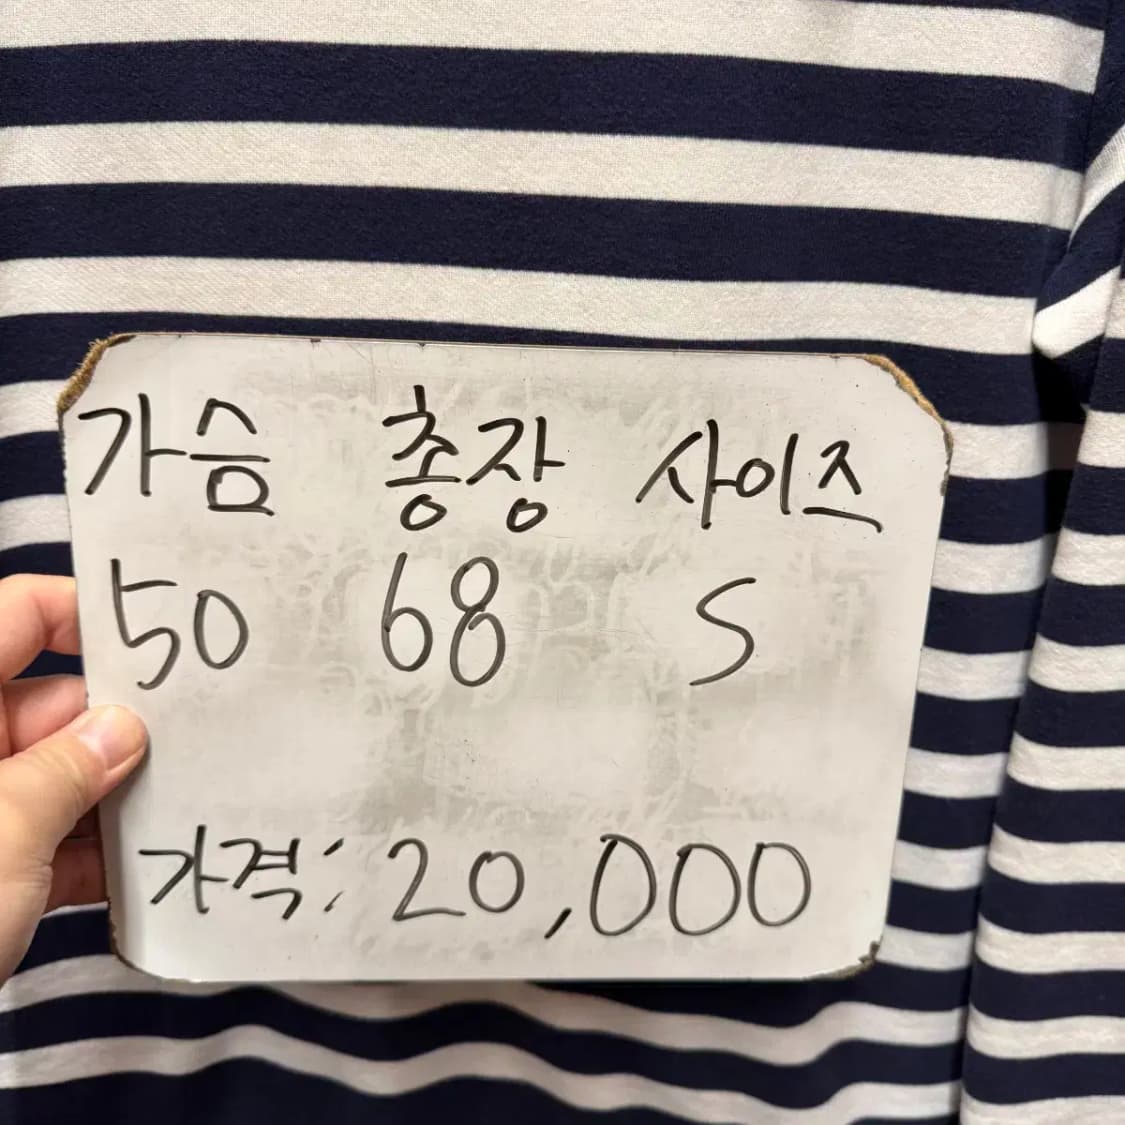 가슴 총장 사이즈
50 68 S
가격: 20,000